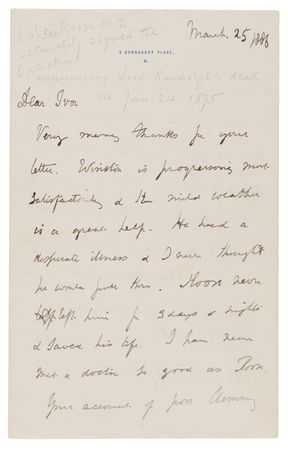 Robson Roose M.D.
ultimately signed the
bulletin
announcing Lord Randolph's death
on Jan 24 1895
March. 25/1886
2 CONNAUGHT PLACE,
W.
Dear Ivor
Very many thanks for your
letter. Winston is progressing most
satisfactorily & the mild weather
is a great help. He had a
desperate illness & I never thought
he would pull thro. Roose never
left him for 3 days & nights
& saved his life. I have never
met a doctor so good as Roose.
Your account of poor